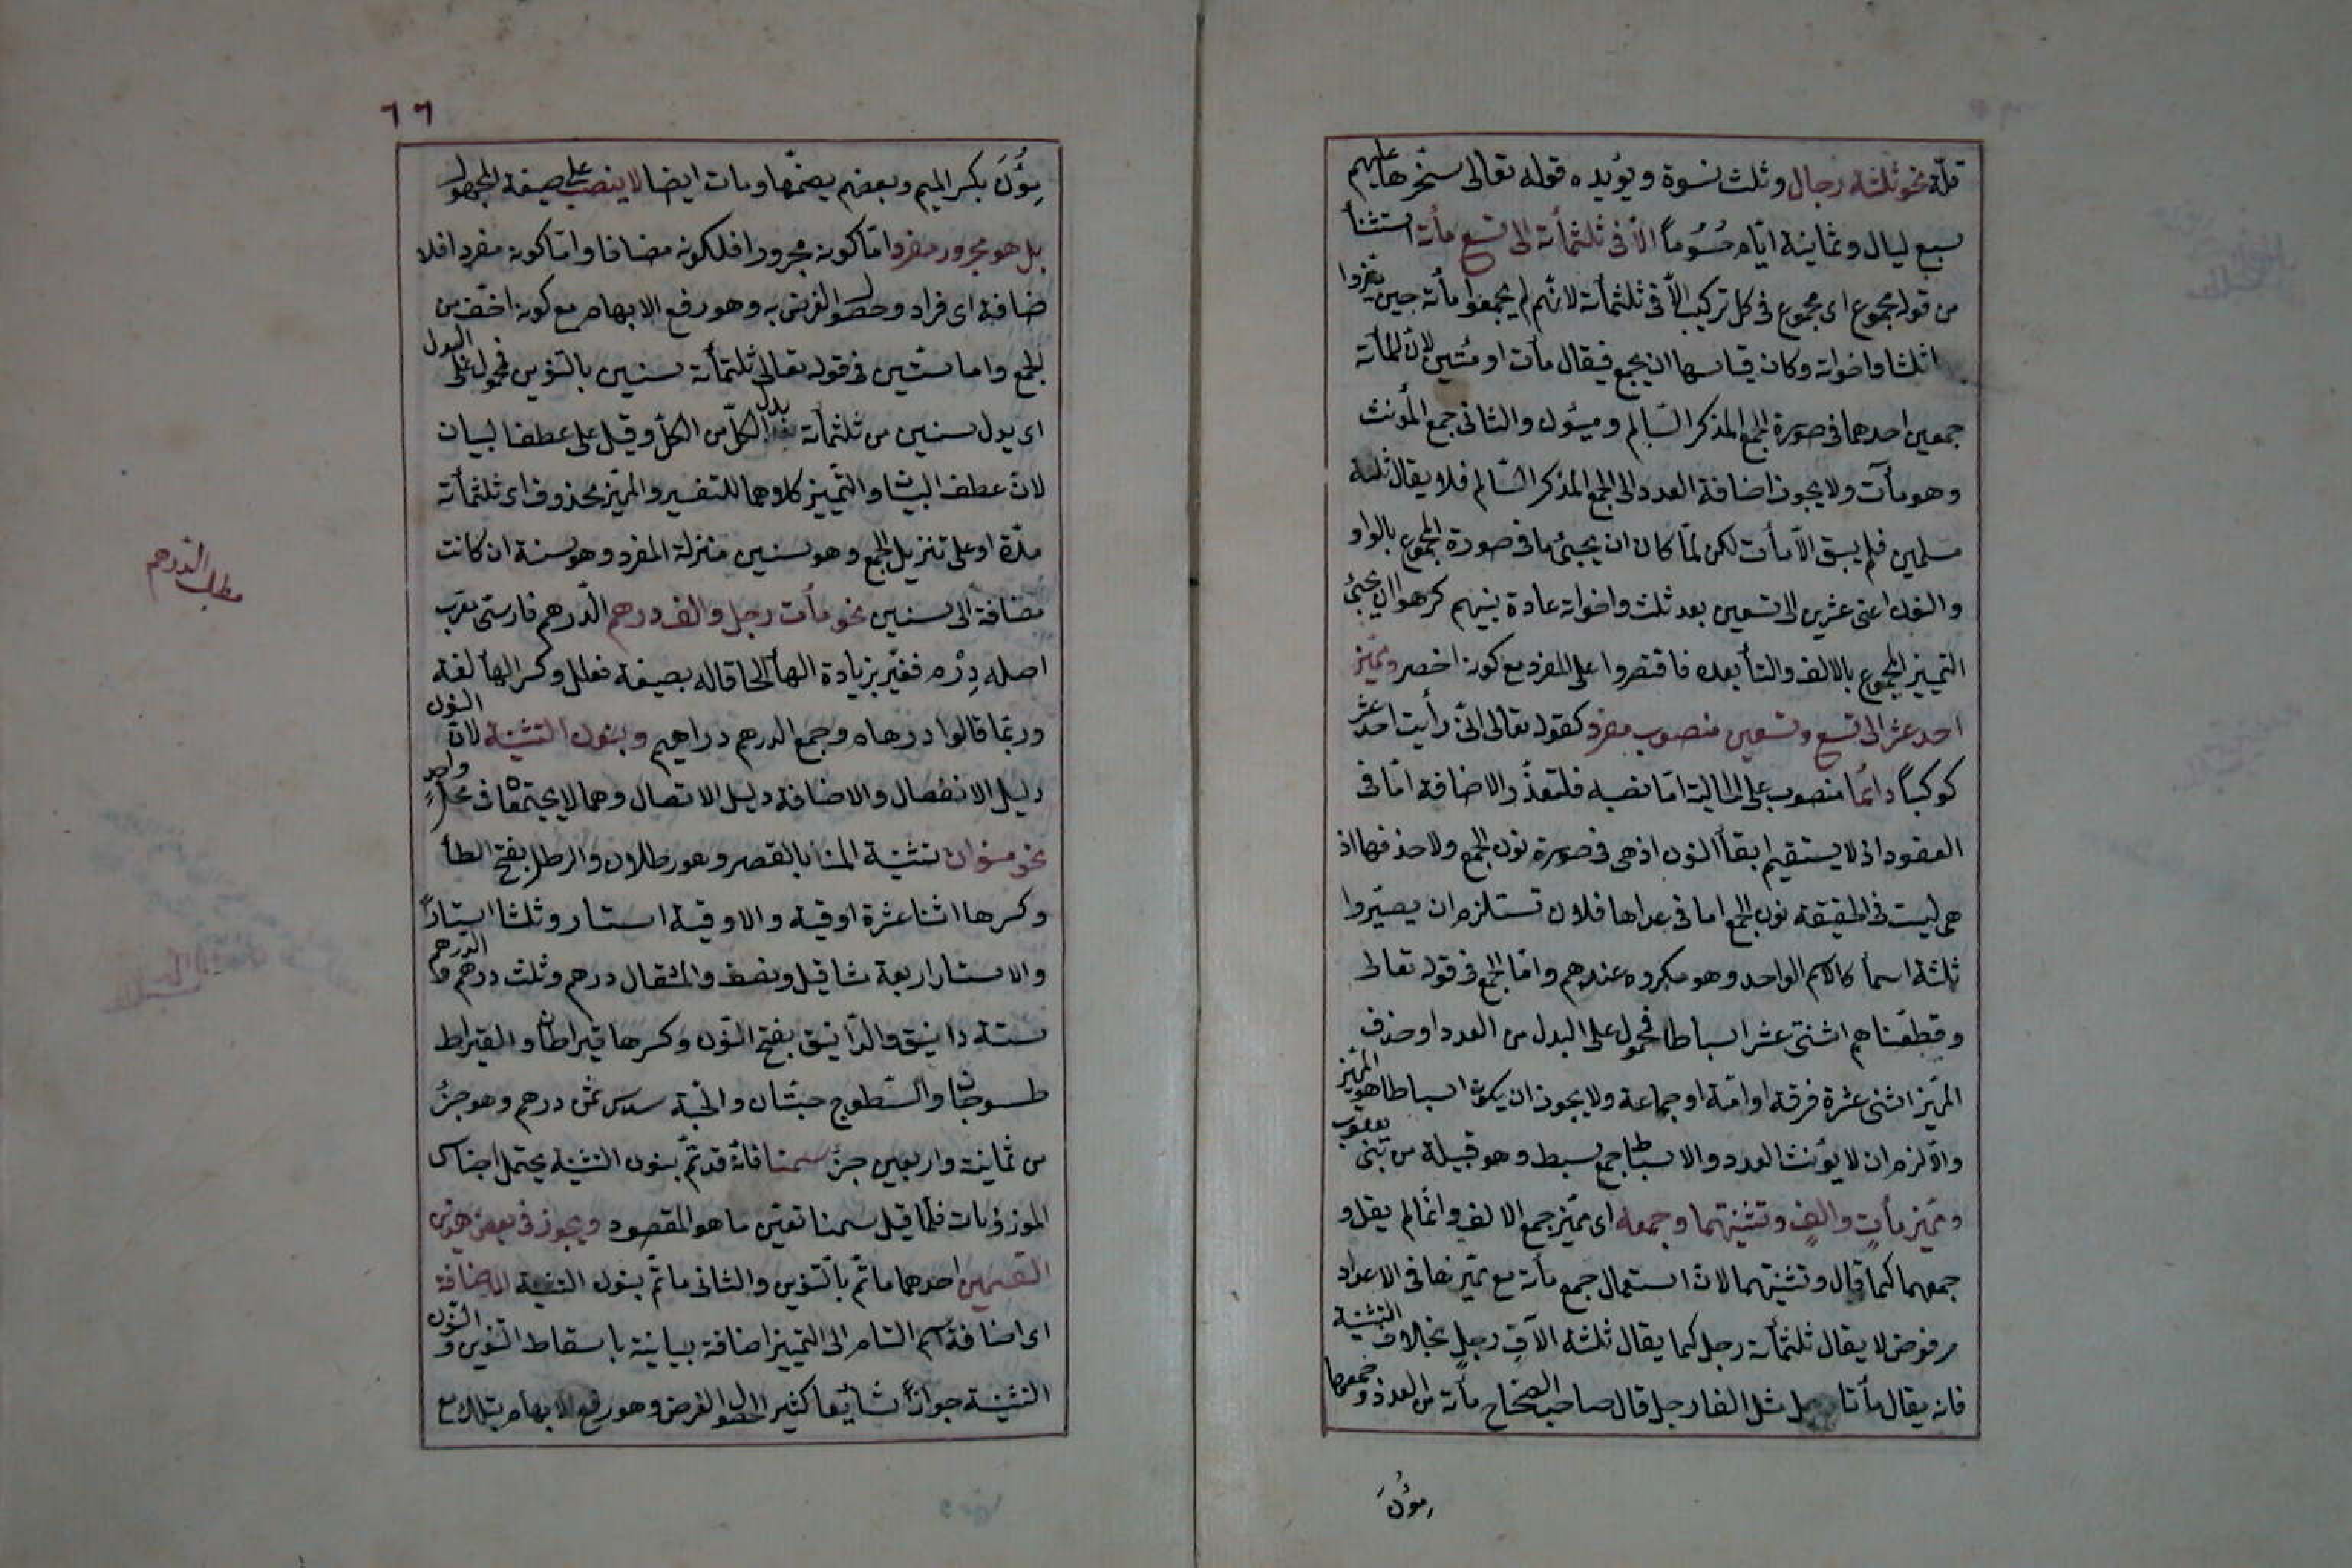 قلّة نحو ثلثة رجال وثلث نسوة ويؤيده قوله تعالى سخّرها عليهم
سبع ليال وثمانية ايّام حُسُوماً الاّ فى ثلثمأة الى تسع مأة استثنأ
من قوله مجموع اى مجموع فى كل تركيب الاّ فى ثلثمأة لانّهم لم يجمعوا مأة حين ميّزوا
ثلثا واخواته وكان قياسها ان يجمع فيقال مأت او مئين لانّ للمأة
جمعين احدهما فى صورة الجمع المذكر السّالم ومئون والثانى جمع المؤنث
وهو مأت ولا يجوز اضافة العدد الى الجمع المذكر السّالم فلا يقال ثلثة
مسلمين فلم يبق الاّ مأت لكن لمّا كان ان يجيئ ما فى صورة المجموع بالواو
والنون اعنى عشرين الى تسعين بعد ثلث واخواته عادة بينهم كرهوا ان يجيئ
التمييز المجموع بالالف والتأ بعده فاقتصروا على المفرد مع كونه اخصر ومميّز
احد عشر الى تسع وتسعين منصوب مفرد كقوله تعالى انّى رأيت احد عشر
كوكباً دائما منصوب على الحالية امّا نصبه فلتعذّر الاضافة امّا فى
العقود اذ لا يستقيم ابقأ النون اذ هى فى صورة نون الجمع ولا حذفها اذ
هى ليست فى الحقيقة نون الجمع اما فى عداها فلان تستلزم ان يصيّروا
ثلثة اسمأ كالاسم الواحد وهو مكروه عندهم وامّا الجمع فى قوله تعالى
وقطعناهم اثنتى عشر اسباطا فمحمول على البدل من العدد او حذف
المميّز اثنى عشرة فرقة او امّة او جماعة ولا يجوز ان يكون اسباطا هو المميّز
والاّ لزم ان لا يؤنث العدد والاسباط جمع سبط وهو قبيلة من بنى يعقوب
ومميّز مأت والف وتثنيتهما وجمعه اى مميّز جمع الالف وانّما لم يقل و
جمعهما كما قال وتثنيتهما لانّ استعمال جمع مأة مع مميّزها فى الاعداد
مرفوض لا يقال ثلثمأة رجل كما يقال ثلثة الآف رجل بخلاف التثنية
فانه يقال مأتا رجل مثل الفا رجل قال صاحب الصّحاح مأة من العدد وجمعها
مؤنَ
٦٦
مؤُنَ بكسر الميم وبعضهم بضمّها ومات ايضا لا ينصب على صيغة المجهول
بل هو مجرور مفرد امّا كونه مجرورا فلكونه مضافا وامّا كونه مفردا فلا
ضافة اى فراد وحصول الغرض به وهو رفع الابهام مع كونه اخفّ من
الجمع واما سنين فى قوله تعالى ثلثمأة سنين بالتنوين فمحمول على البدل
اى بدل سنين من ثلثمأة بدل الكلّ من الكلّ وقيل على عطف البيان
لانّ عطف البيان والتّمييز كلاهما للتفسير والمميّز محذوف اى ثلثمأة
مدّة او على تنزيل الجمع وهو سنين منزلة المفرد وهو سنة ان كانت
مضافة الى سنين نحو مأت رجل والف درهم الدّرهم فارسىّ معرّب
اصله دِرْم فغيّر بزيادة الهأ الحاقا له بصيغة فعلل وكسر الهأ لغة
وربّما قالوا درهام وجمع الدرهم دراهيم وبنون التثنية لانّ النون
دليل الانفصال والاضافة دليل الاتصال وهما لا يجتمعان فى محلّ واحد
نحو منوان تثنية المنا بالقصر وهو رطلان والرطل بفتح الطأ
وكسرها اثنا عشرة اوقية والاوقية استار وثلثا استار
والاستار اربعة مثاقيل ونصف والمثقال درهم وثلث درهم والدرهم
ستة دانيق والدّانيق بفتح النّون وكسرها قيراطان والقيراط
طسوجان والسّطوج حبّتان والحبّة سدس ثمن درهم وهو جزؤ
من ثمانية واربعين جزؤ سمنا فانّه قد تمّ بنون التثنية يحتمل اجناس
الموزونات فلمّا قيل سمنا تعيّن ما هو المقصود ويجوز فى بعض هذين
القسمين احدهما ما تمّ بالتّنوين والثانى ما تمّ بنون التثنية الاضافة
اى اضافة اسم التام الى التمييز اضافة بيانية باسقاط التنوين والنّون
التثنية جوازاً شايعا كثيرا لحصول الغرض وهو رفع الابهام بتلك مع
مطلب الدّرهم